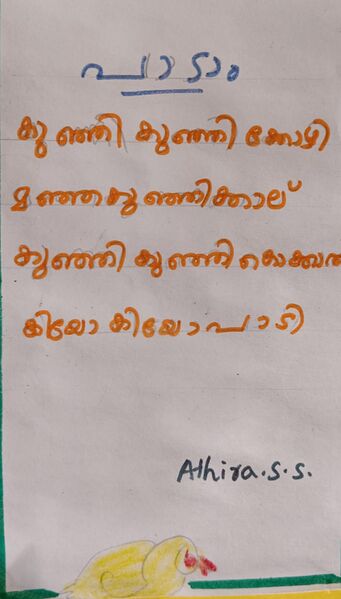 പാടാം
കുഞ്ഞി കുഞ്ഞി ക്കോഴി
മഞ്ഞകുഞ്ഞിക്കാല്
കുഞ്ഞി കുഞ്ഞി
കിയോ കിയോ പാടി
Athira.S.S.